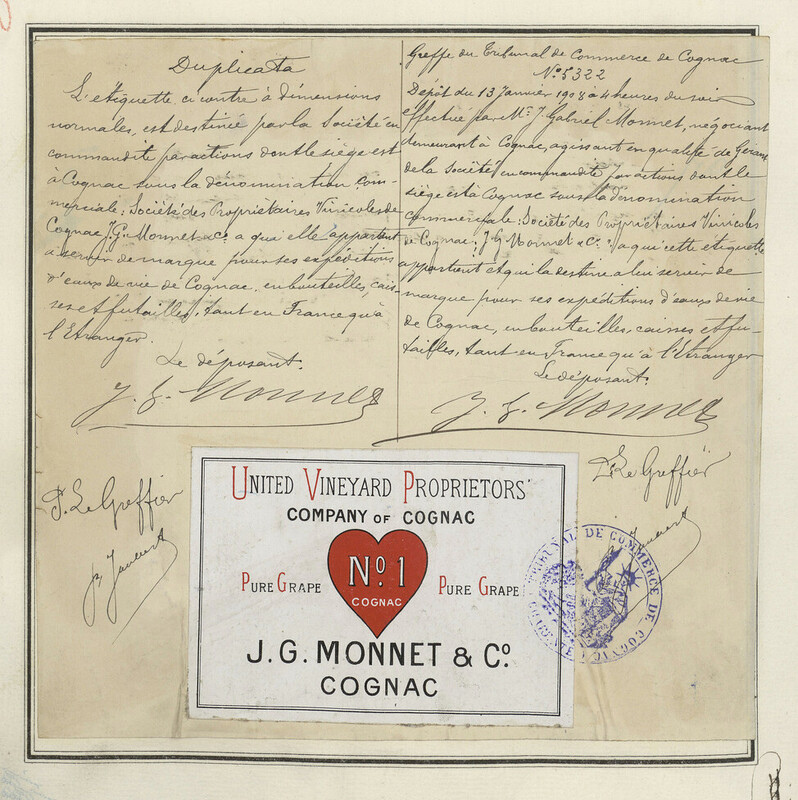 Duplicata
L'etiquette ci contre à dimensions
normales, est destinée par la Société en
commandite par actions dont le siège est
à Cognac sous la dénomination com-
merciale: Société des Propriétaires Vinicoles de
Cognac J. G. Monnet & Co. a qui elle appartient
a servir de marque pour ses expéditions
d'eaux de vie de Cognac, en bouteilles, cais-
ses et futailles, tant en France qu'à
l'Etranger.
Le déposant.
J. G. Monnet
P. Le Greffier
Greffe du Tribunal de Commerce de Cognac
No 5322
Dépôt du 13 Janvier 1908 à 4 heures du soir
effectué par Mr. J. Gabriel Monnet, négociant
demeurant à Cognac, agissant en qualité de Gérant
de la Société en commandite par actions dont le
siège est à Cognac sous la dénomination
commerciale: Société des Propriétaires Vinicoles
de Cognac: J. G Monnet & Co. "a qui cette étiquette
appartient et qui la destine a lui servir de
marque pour ses expéditions d'eaux de vie
de Cognac, en bouteilles, caisses et fu-
tailles, tant en France qu'à l'Etranger
Le déposant.
J. G. Monnet
P. Le Greffier
UNITED VINEYARD PROPRIETORS'
COMPANY OF COGNAC
No. 1
COGNAC
PURE GRAPE
PURE GRAPE
J. G. MONNET & Co.
COGNAC
TRIBUNAL DE COMMERCE DE COGNAC